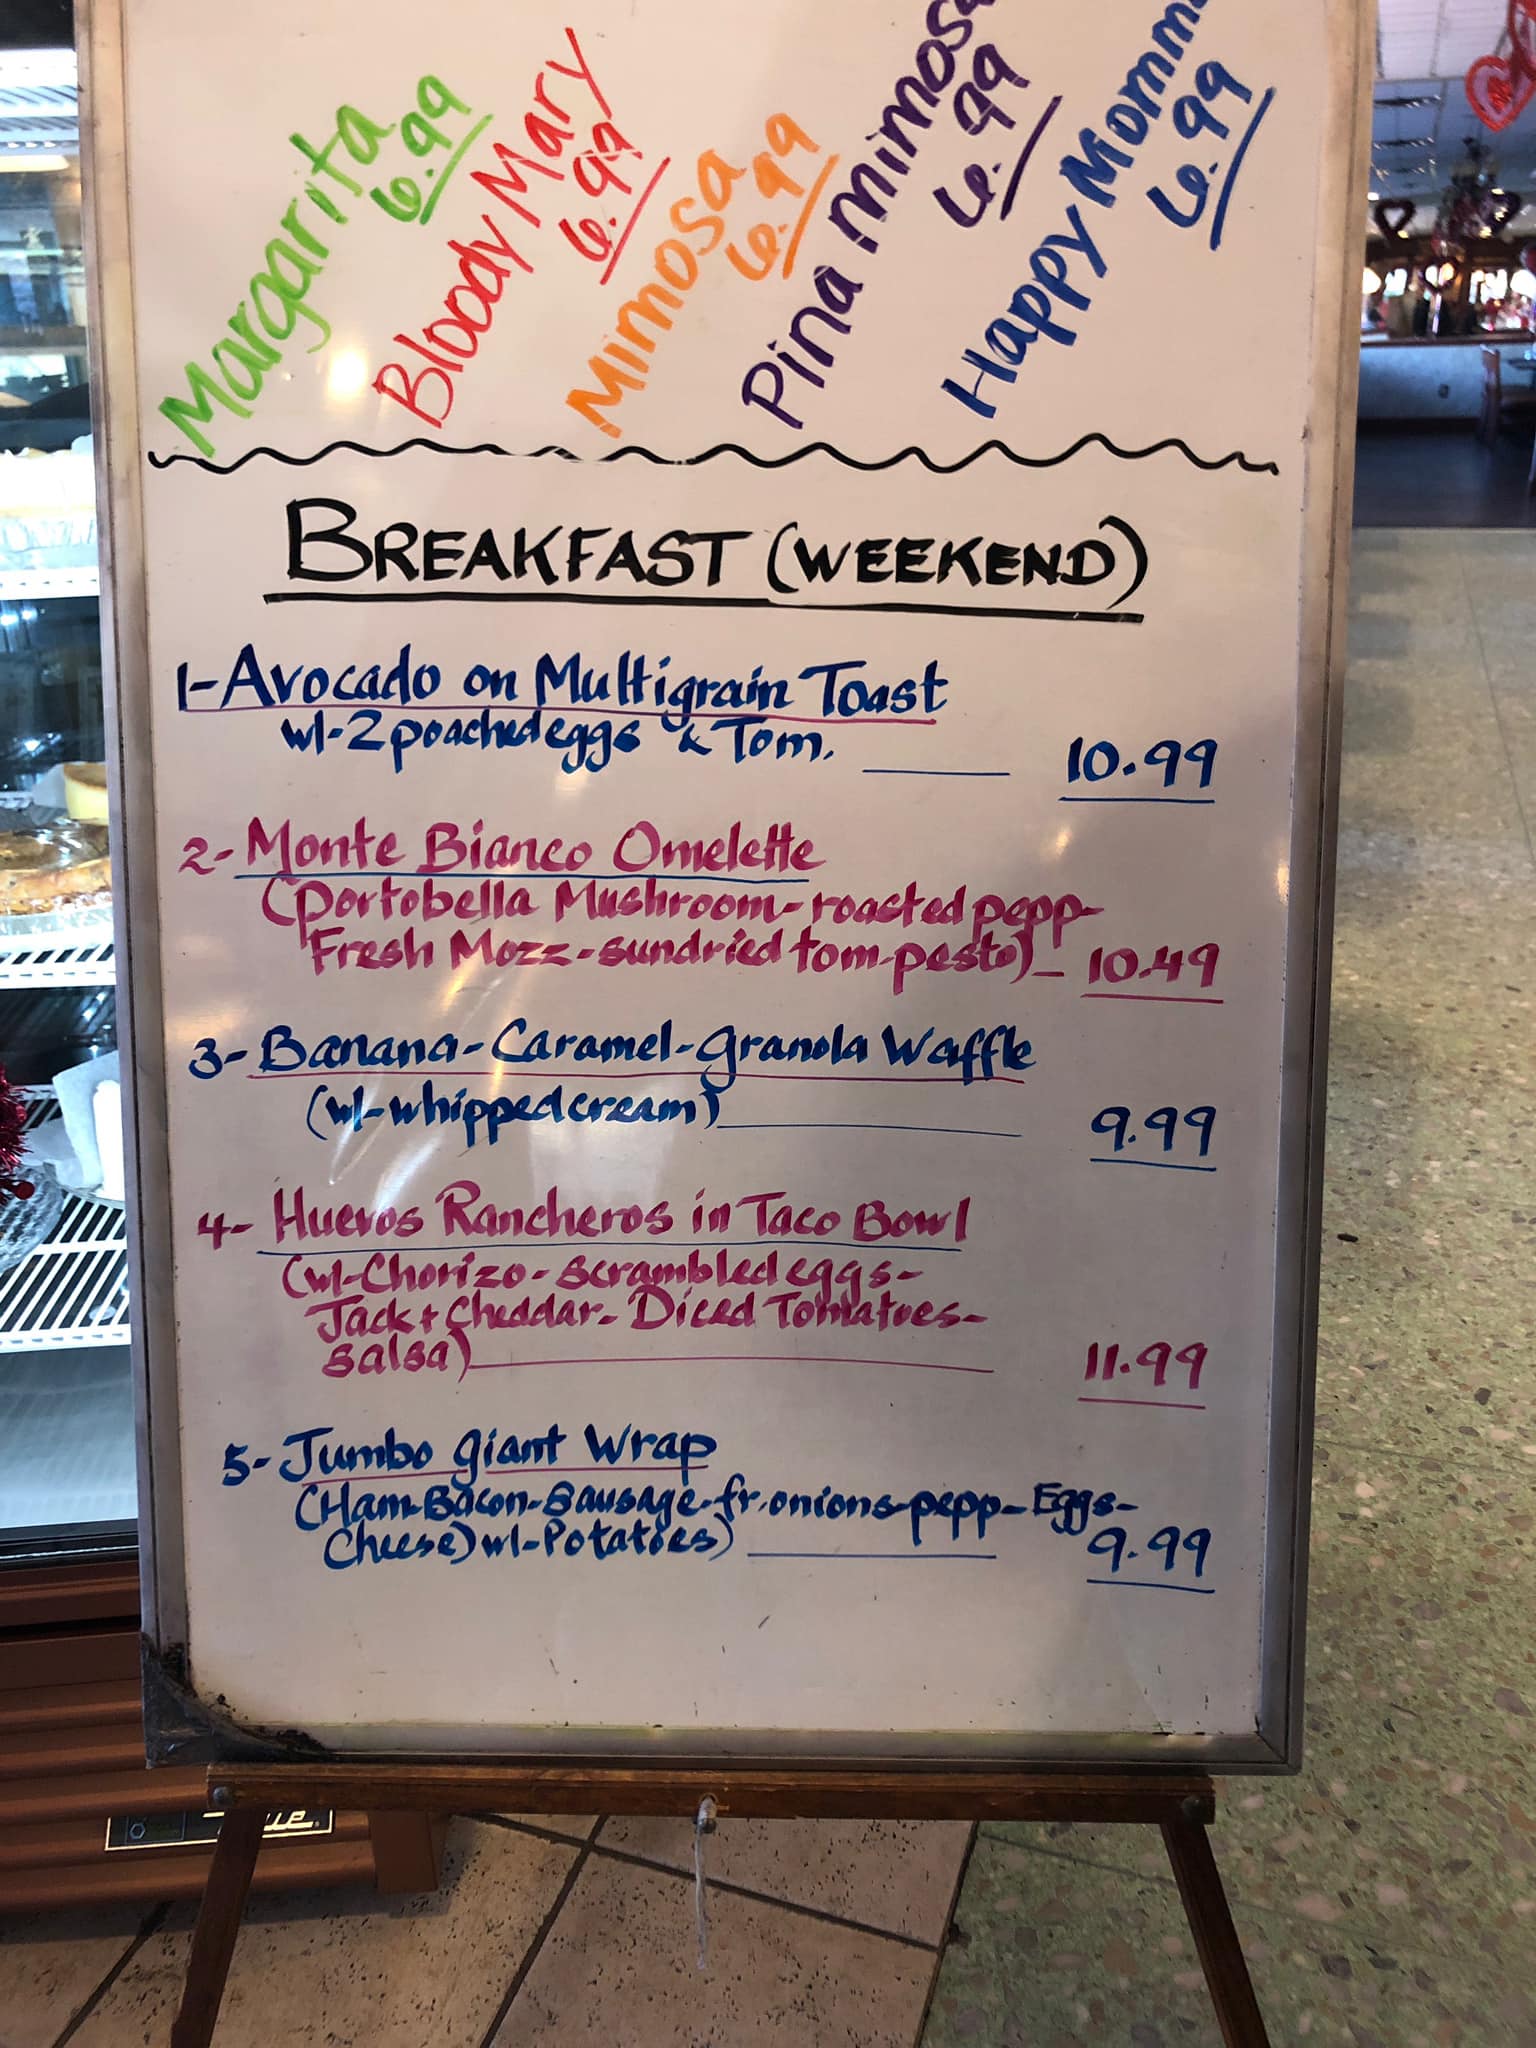 Margarita
6.99
Bloody Mary
6.99
Mimosa
6.99
Pina
6.99
Happy
6.99
BREAKFAST (WEEKEND)
1-Avocado on Multigrain Toast
w/-2 poached eggs & Tom. 10.99
2- Monte Bianco Omelette
(portobella Mushroom-roasted pepp-
Fresh Mozz-sundried tom-pesto) 10.49
3- Banana-Caramel-Granola Waffle
(w/-whipped cream) 9.99
4- Huevos Rancheros in Taco Bowl
(w/-Chorizo-scrambled eggs-
Jack + Cheddar-Diced Tomatoes-
salsa) 11.99
5- Jumbo giant Wrap
(Ham-Bacon-Sausage-fr.onions-pepp-Eggs-
Cheese) w/-Potatoes) 9.99